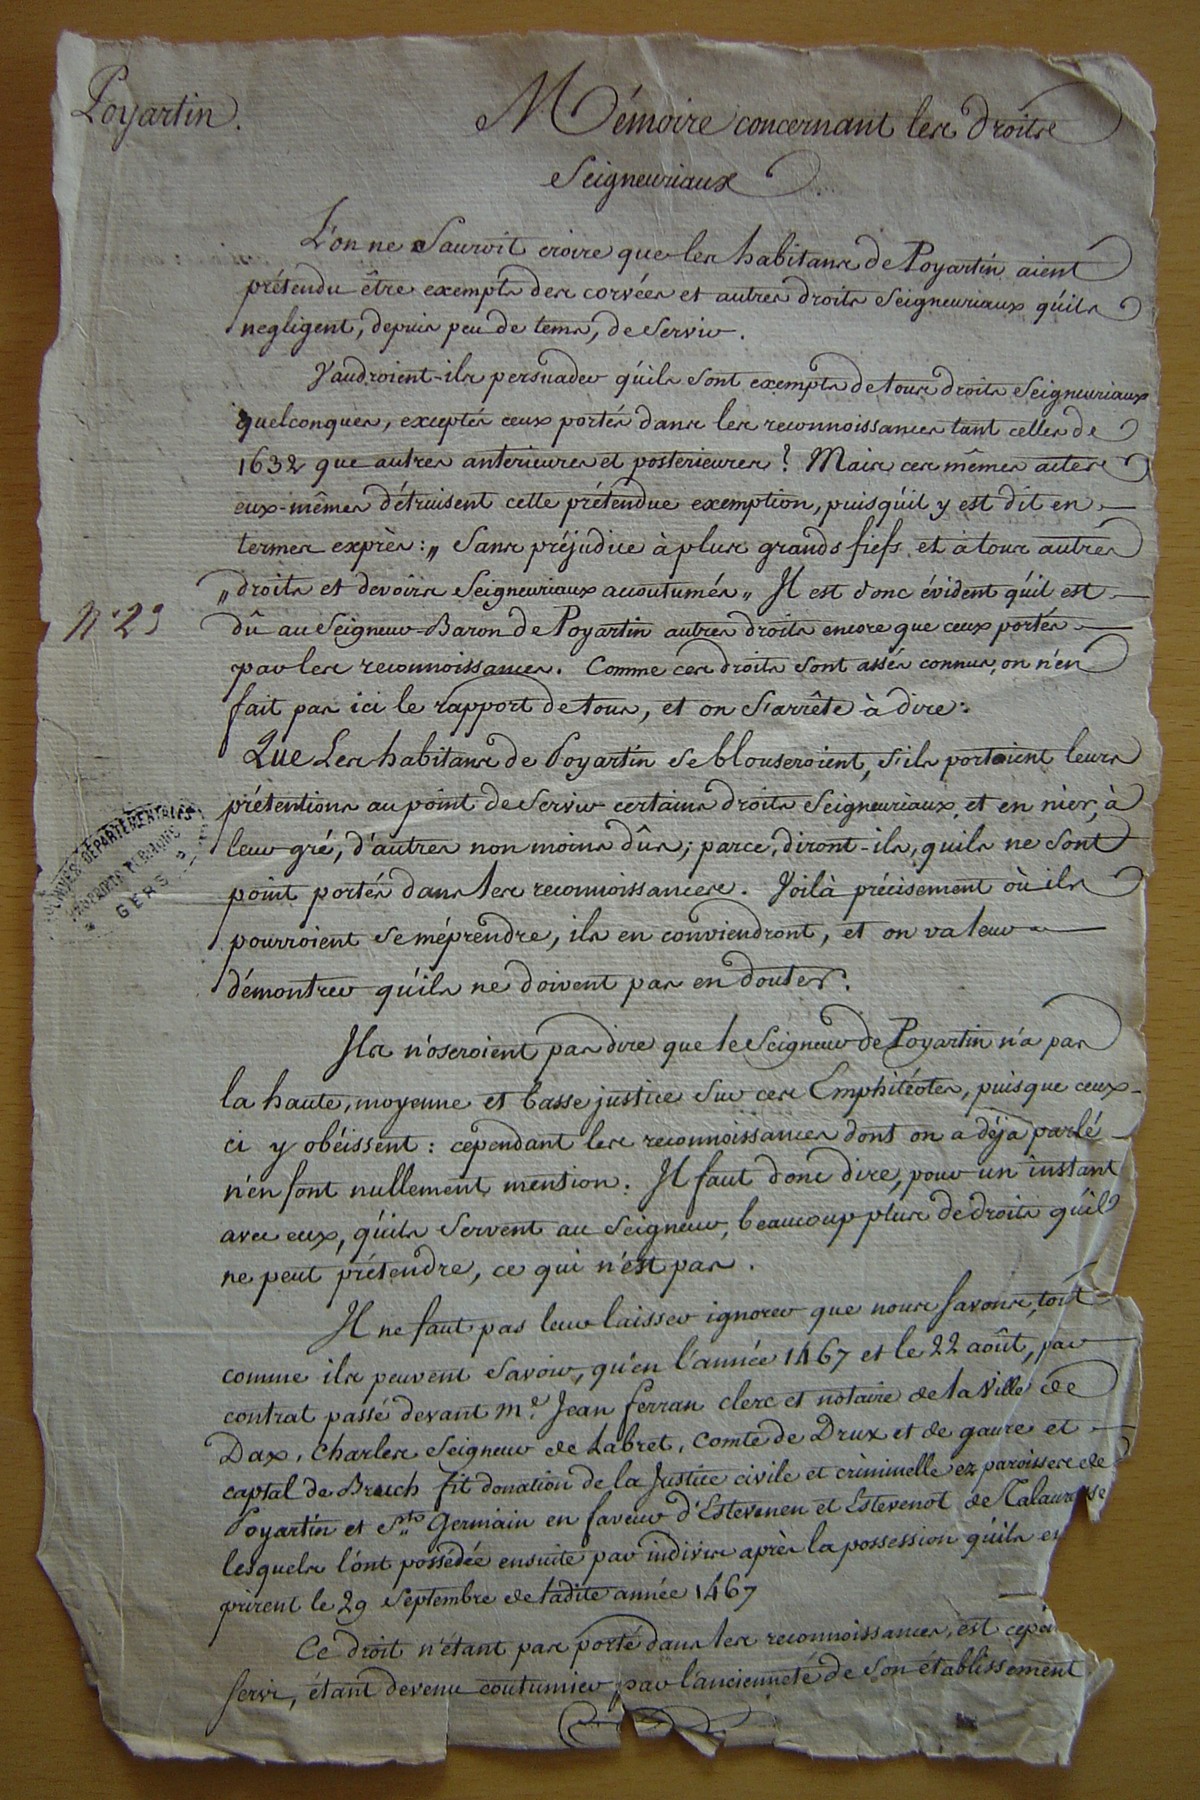 Poyartin.
Mémoire concernant les droits
Seigneuriaux
L'on ne Sauroit croire que les habitans de Poyartin aient
prétendu être exempts des corvées et autres droits Seigneuriaux qu'ils
negligent, depuis peu de tems, de Servir.
Vaudroient-ils persuader qu'ils sont exempts de tous droits Seigneuriaux
quelconques, exceptés ceux portés dans les reconnoissances tant celles de
1632 que autres anterieures et posterieures? Mais ces mêmes actes
eux-mêmes détruisent cette prétendue exemption, puisqu'il y est dit en
termes exprès: „ Sans préjudice à plus grands fiefs et à tous autres
„ droits et devoirs Seigneuriaux accoutumés „ Il est donc évident qu'il est
N° 23
dû au Seigneur Baron de Poyartin autres droits encore que ceux portés
par les reconnoissances. Comme ces droits sont assés connus, on n'en
fait pas ici le rapport de tous, et on s'arrête à dire:
Que Les habitans de Poyartin se blouseroient, s'ils portoient leurs
prétentions au point de Servir certains droits Seigneuriaux, et en nier, à
leur gré, d'autres non moins dûs; parce, diront-ils, quils ne sont
point portés dans les reconnoissances. Voilà précisement où ils
pourroient se méprendre, ils en conviendront, et on va leur
démontrer qu'ils ne doivent pas en douter.
ARCHIVES DÉPARTEMENTALES
PROPRIÉTÉ PUBLIQUE
GERS
Ils n'oseroient pas dire que le Seigneur de Poyartin n'a pas
la haute, moyenne et basse justice sur ces Emphitéotes, puisque ceux-
ci y obéissent: cependant les reconnoissances dont on a déja parlé
n'en font nullement mention. Il faut donc dire, pour un instant
avec eux, qu'ils servent au Seigneur, beaucoup plus de droits qu'il
ne peut prétendre, ce qui n'est pas.
Il ne faut pas leur laisser ignorer que nous savons, tout
comme ils peuvent savoir, qu'en l'année 1467 et le 22 août, par
contrat passé devant Me. Jean ferran clerc et notaire de la ville de
Dax, Charles Seigneur de Labret, Comte de Drux et de gaure et
captal de Bruch fit donation de la Justice civile et criminelle ez paroisses de
Poyartin et St. Germain en faveur d'Estevenen et Estevenot de Talauresse
lesquels l'ont possédée ensuite par indivis après la possession qu'ils en
prirent le 29 Septembre de ladite année 1467
Ce droit n'étant pas porté dans les reconnoissances, est
servi, étant devenu coutumier par l'ancienneté de son établissement